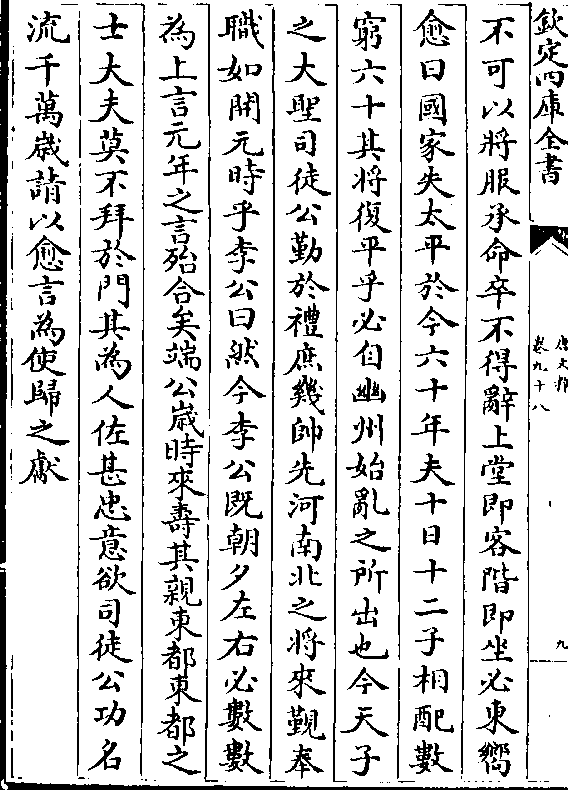 欽定四庫全書
唐文粹
卷九十八
九
不可以將服承命卒不得辭上堂即客階即坐必東嚮
愈曰國家失太平於今六十年夫十日十二子相配數
窮六十其將復平乎必自幽州始亂之所出也今天子
之大聖司徒公勤於禮庶幾帥先河南北之將來覲奉
職如開元時乎李公曰然今李公既朝夕左右必數數
為上言元年之言殆合矣端公歲時來壽其親東都東都之
士大夫莫不拜於門其為人佐甚忠意欲司徒公功名
流千萬歲請以愈言為使歸之獻